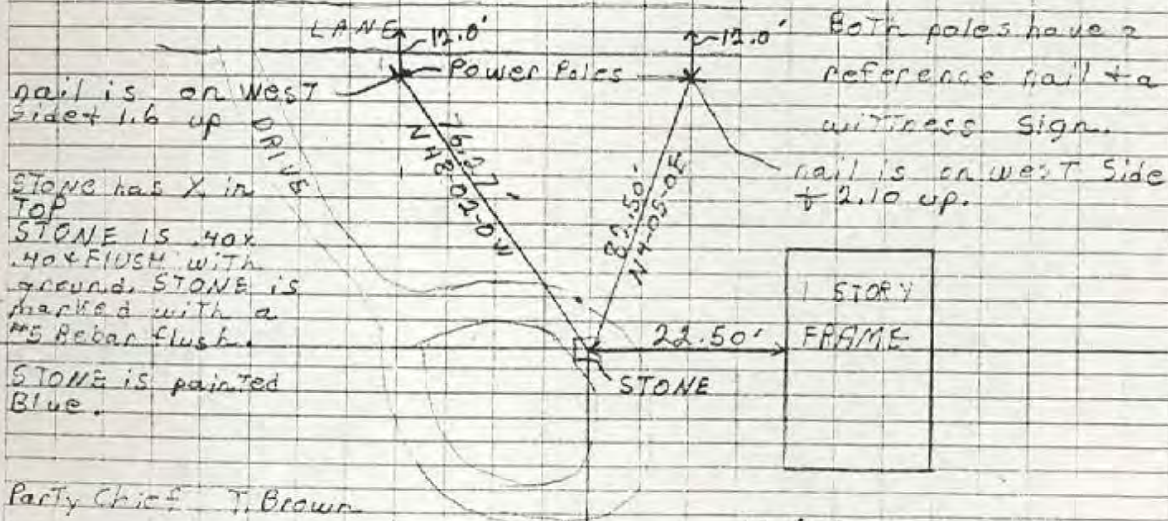 LANE
12.0'
12.0'
Both poles have a
reference nail + a
wittness sign.
Power Poles
nail is on west
side + 1.6 up
nail is on west Side
+ 2.10 up.
DRIVE
76.27'
N48-02-0W
82.50'
N4-05-0E
STONE has X in
TOP
STONE IS .40x
.40 & FLUSH with
ground. STONE is
marked with a
#5 Rebar flush.
STONE is painted
Blue.
1 STORY
FRAME
22.50'
STONE
Party Chief T. Brown